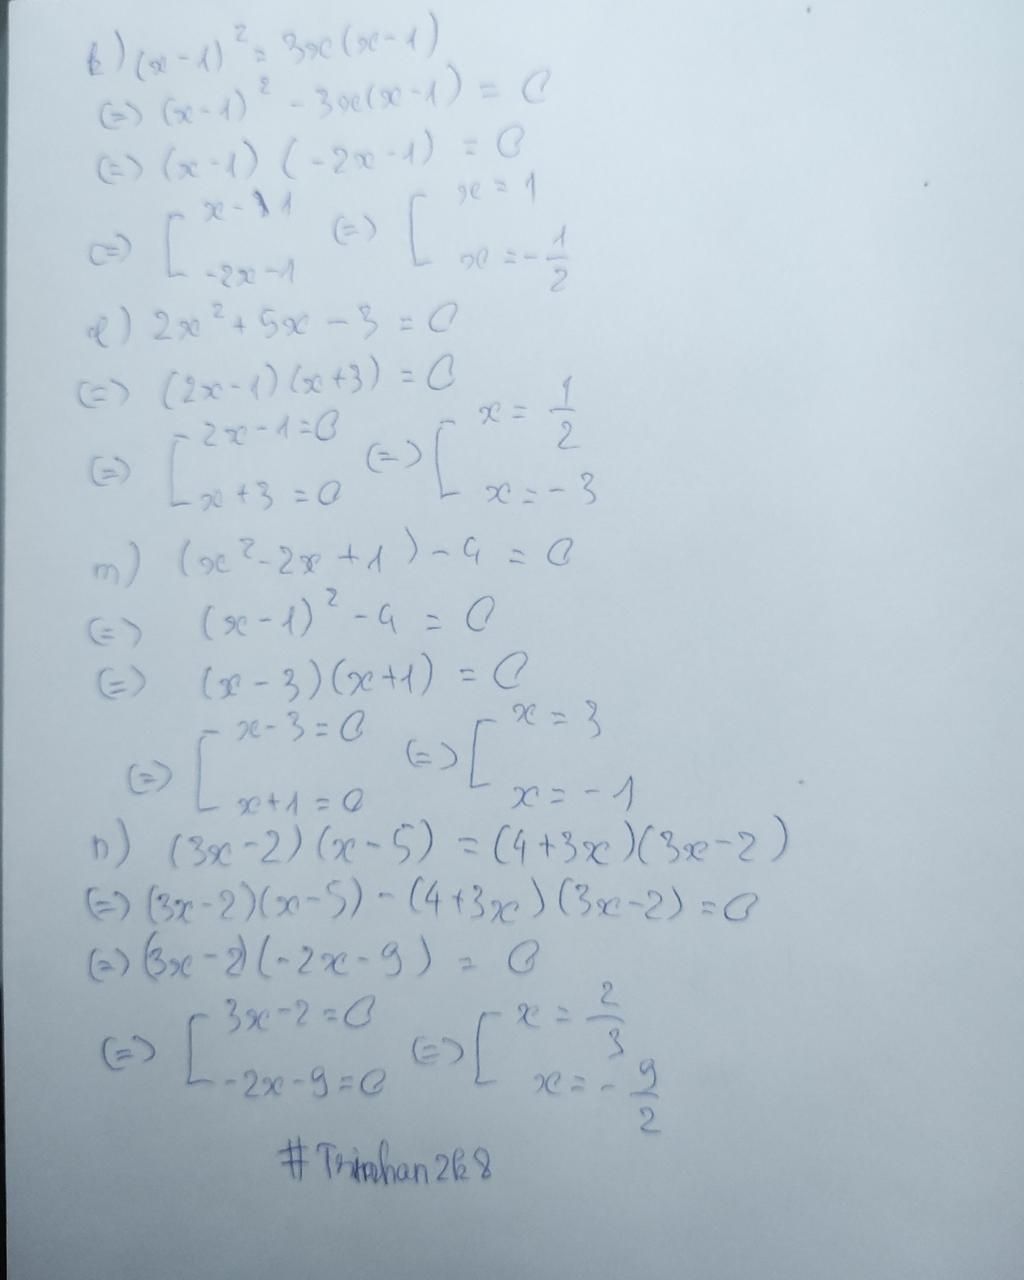 k) (x-1)² = 3x(x-1)
(=) (x-1)² - 3x(x-1) = 0
(=) (x-1) (-2x-1) = 0
(=) [ x-1 (=) [ x = 1
-2x-1 x = -1/2
l) 2x² + 5x - 3 = 0
(=) (2x-1)(x+3) = 0
(=) [ 2x-1=0 (=) [ x = 1/2
x+3 = 0 x = -3
m) (x²-2x+1) - 4 = 0
(=) (x-1)² - 4 = 0
(=) (x-3)(x+1) = 0
(=) [ x-3 = 0 (=) [ x = 3
x+1 = 0 x = -1
n) (3x-2)(x-5) = (4+3x)(3x-2)
(=) (3x-2)(x-5) - (4+3x)(3x-2) = 0
(=) (3x-2)(-2x-9) = 0
(=) [ 3x-2=0 (=) [ x = 2/3
-2x-9=0 x = -9/2